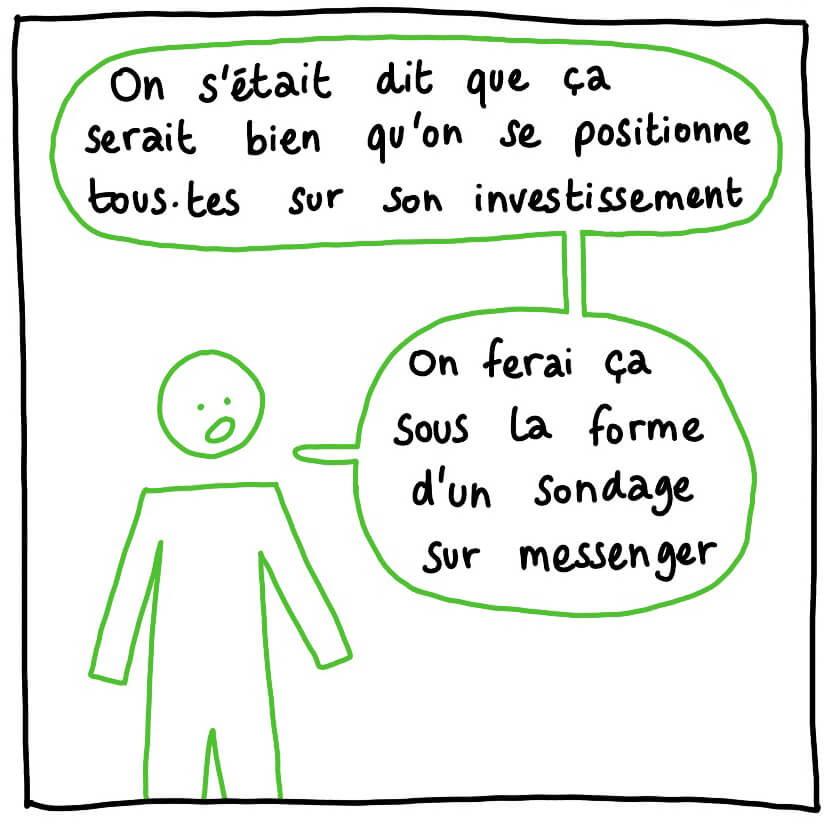 On s'était dit que ça
serait bien qu'on se positionne
tous·tes sur son investissement
On ferai ça
sous la forme
d'un sondage
sur messenger